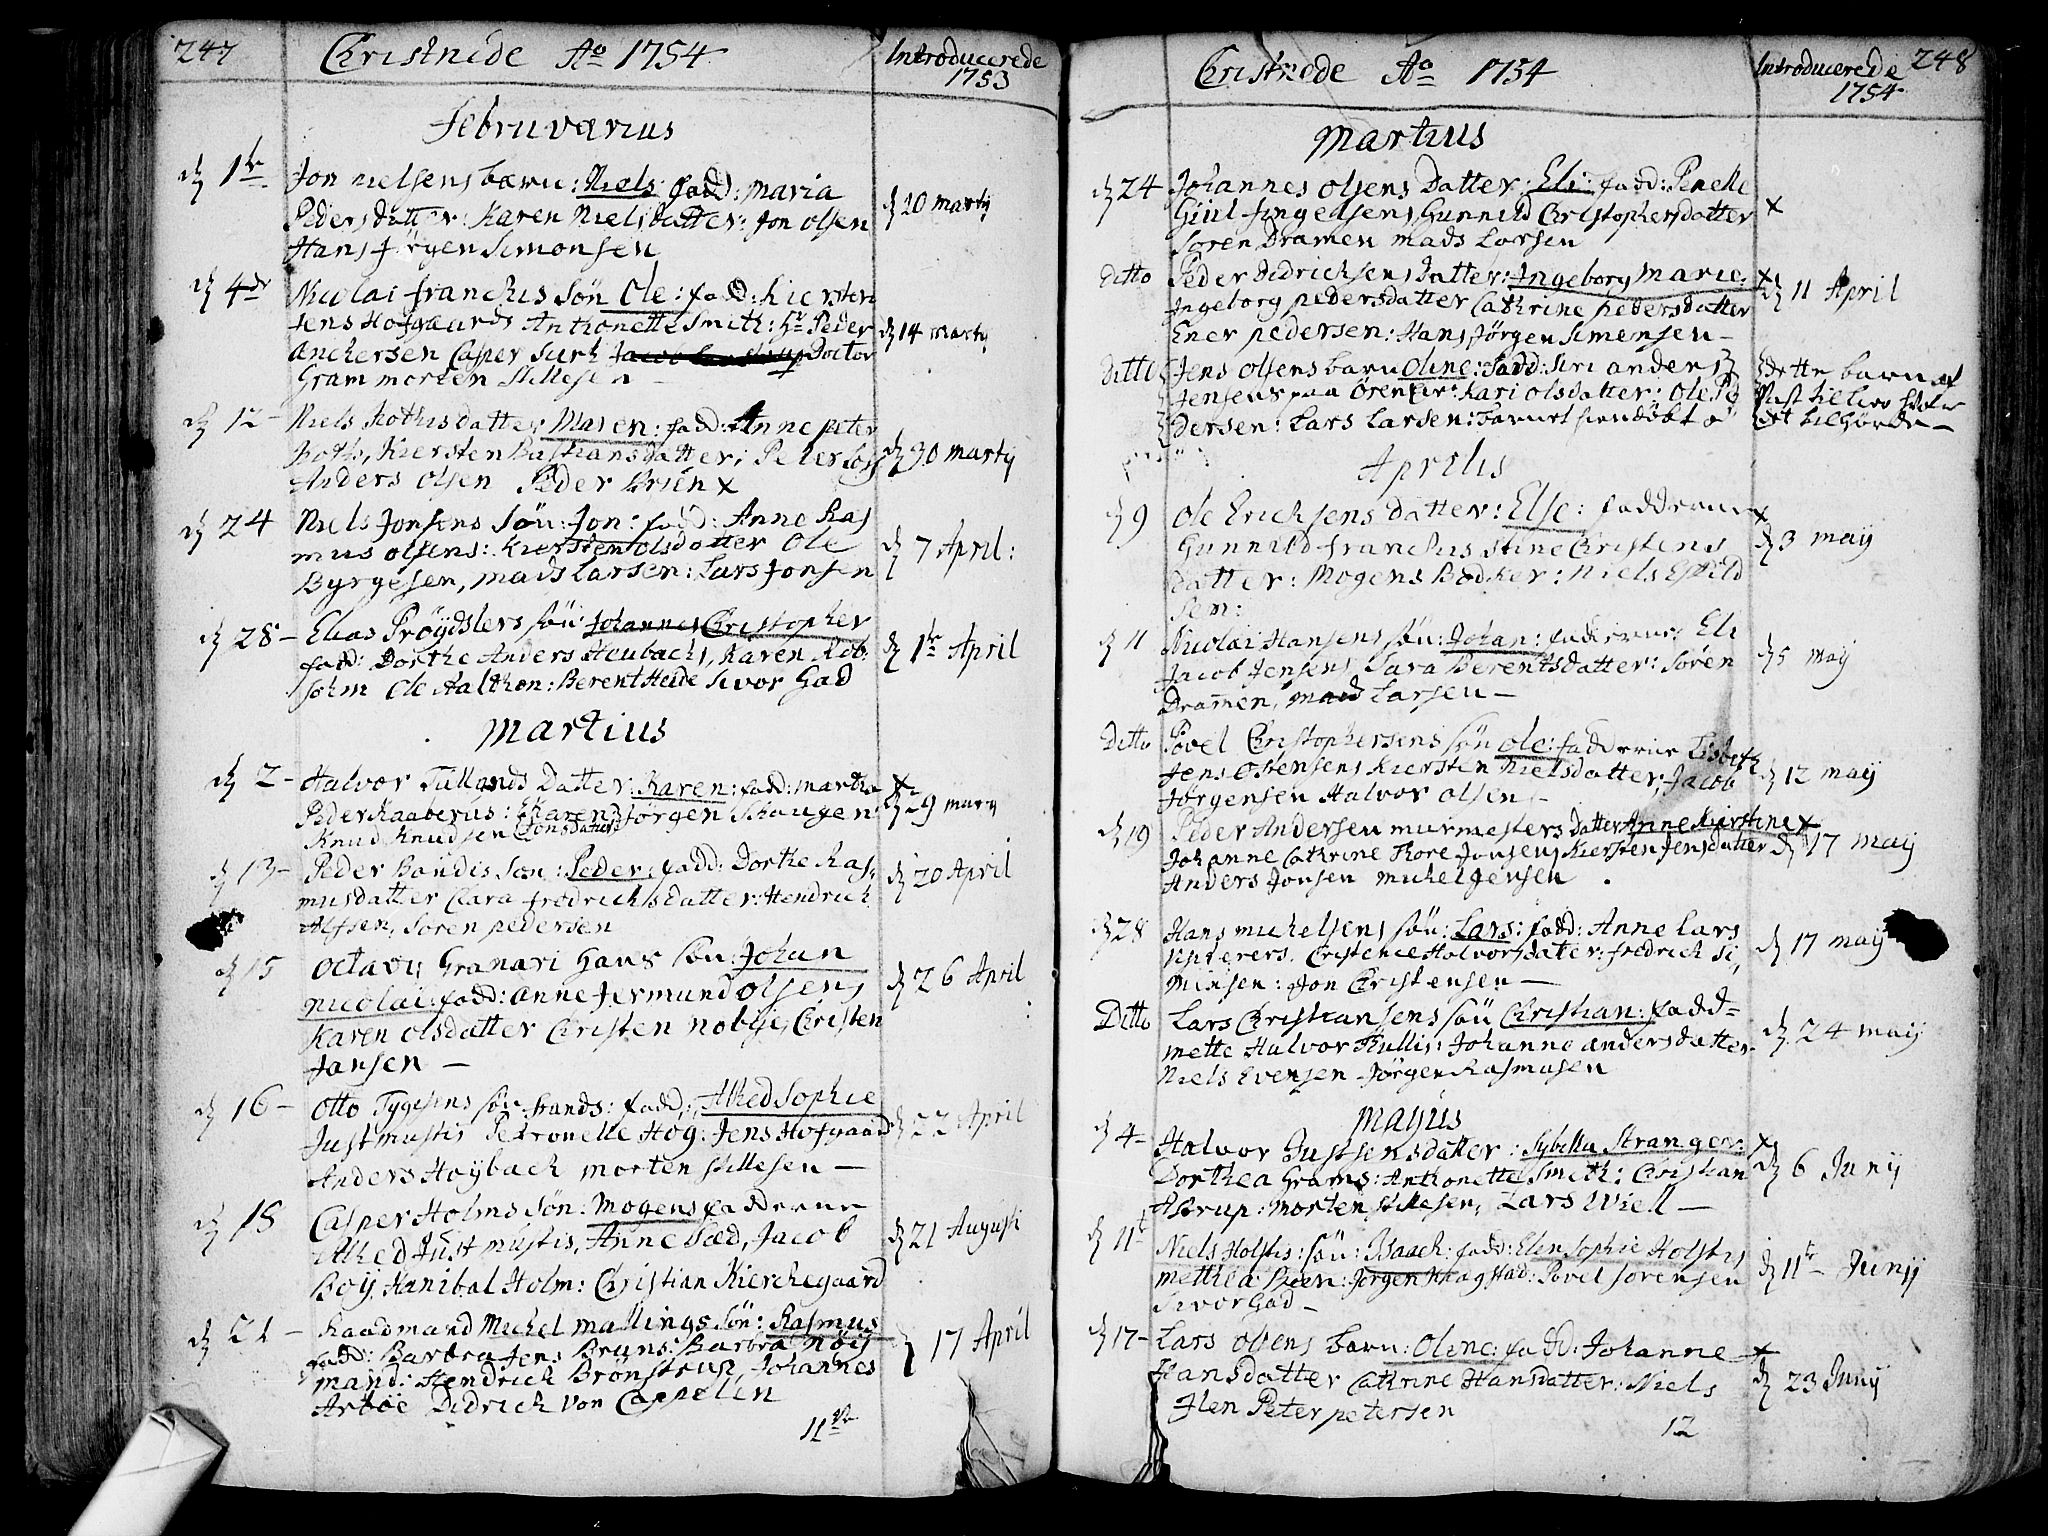 247 Christnede Ao 1754 Introducerede 1753
Februvarius
d 1te Jon nielsens barn: Niels: fadd: maria
Pedersdatter: Karen Nielsdatter: Jon olsen
Hans Jørgen Simonsen
d 20 marty
d 4de Nicolai franchis søn Ole: fadd: Kiersten
Jens Hofgaards Anthonette Smith: Hr Peder
Anchersen Casper Surk Doctor
Gram morten Stillesen —
d 14 marty
d 12 – Niels Rothis datter Maren: fadd: Anne peter
Roths, Kiersten Bastiansdatter; Peter
Anders Olsen Peder Brien x
d 30 marty
d 24 Niels Jonsens søn: Jon: fadd: Anne Ras
mus olsens: Kiersten olsdatter Ole
Byrgesen, mads Larsen: Lars Jonsen
d 7 April:
d 28 – Elias Prøydslers søn Johannes Christopher
fadd: Dorthe Anders Heubachs, Karen Rob:
sohm Ole Aalthon: Berent Heide Sivor Gad
d 1te April
Martius
d 2 – Halvor Tullgnds Datter: Karen: fadd: martha
Peder Raaberus: Karen Jørgen Skougen
Knud Knudsen Jonsdatter
x
d 29 mary
d 13 – Peder Bøndis søn: Peder: fadd: Dorthe Ras-
musdatter Clara fredrichsdatter: Hendrich
Alfsen, Søren pedersen
d 20 April
d 15 Octavi Granari Gaus søn: Johan
nicolai: fadd: anne Jermund olsens
Karen olsdatter Christen nobye, Christen
Jansen —
d 26 April
d 16 – Otto Tygesens søn frands: fadd: Alhed Sophie
Justmustis Petronelle Hog: Jens Hofgaard
Anders Høybach morten stillesen —
d 22 April
d 18 Casper Holms søn: Mogens fadderne
Alhed Justmustis, Anne Sæd, Jacob
Boy, Hanibal Holm: Christian Kierchegaard
d 21 Augusti
d 21 – Raadmand Michel mallings søn: Rasmus
fadd: Barbra Jens Bruns: Barbra Nøy
mand: Hendrich Brønstrup, Johannes
Arbøe Didrich von Cappelen
d 17 April
11
Christnede Ao 1754 Introducerede 1754 248
Martius
d 24 Johannes olsens Datter: Eli: fadd: Penelle
Giul Jngedsens, Gunnild Christophersdatter
Søren Dramen mads Larsen
x
Ditto Peder Didrichsens datter: Ingeborg Marie:
Ingeborg pedersdatter Cathrine pedersdatter
Ener pedersen: Hans Jørgen Simensen –
x
d 11 April
Ditto Jens Olsens barn Oline: fadd: Siri anders
Jensens paa Øren: Kari olsdatter: Ole Pe
dersen: Lars Larsen:
dette barn
Aprilis
d 9 Ole Ericksens datter: Else: fadderne
Gunnild franchis Stine Christens
datter: Mogens Bødker: Niels Espild
sem:
x
d 3 may
d 11 Nicolai Hansens søn: Johan: fadderne: Eli
Jacob Jensens, Sara Berentsdatter: Søren
Dramen, mads Larsen —
d 5 may
Ditto Povel Christophersens søn Ole: fadderne Lisbeth
Jens Ostensens Kiersten Nielsdatter: Jacob
Jørgensen Halvor Olsen –
d 12 may
d 19 Peder Andersen murmesters Datter Anne Kirstine
Johanne Cathrine Thore Jonsens Kiersten Jensdatter
Anders Jonsen michel Jensen
x
d 17 may
d 28 Hans michelsens søn: Lars: fadd: Anne Lars
Christence Halvorsdater: fredrich Si,
minsen: Jon Christensen —
d 17 may
Ditto Lars Christiansens søn Christian: fadd=
mette Halvor Rullis: Johanne andersdatter
Niels Evensen Jørgen Rasmusen
d 24 may
Majus
d 4 – Halvor Justsens datter: Sybella Stranger:
Dorthea Grams: Anthonette Smith: Christian
Astrup: morten stillesen, Lars Wiell —
x
d 6 Juny
d 11t Niels Holstis: søn: Isaach: fadd: Elen Sophie Holstis
methea Been: Jørgen Kragstad: Povel Sørensen
Sivor Gad –
d 11te Juny
d 17 – Lars olsens barn: Oline: fadd: Johanne
Hansdatter Cathrine Hansdatter: Niels
Jlen Peter petersen
x
d 23 Juny
12